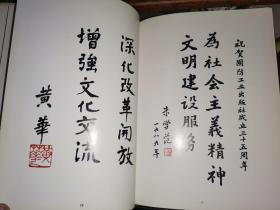 祝賀國防工业出版社成立三十五周年
為社会主義精神
文明建设服务
朱学范
一九八九年
深化改革開放
增強文化交流
黄華